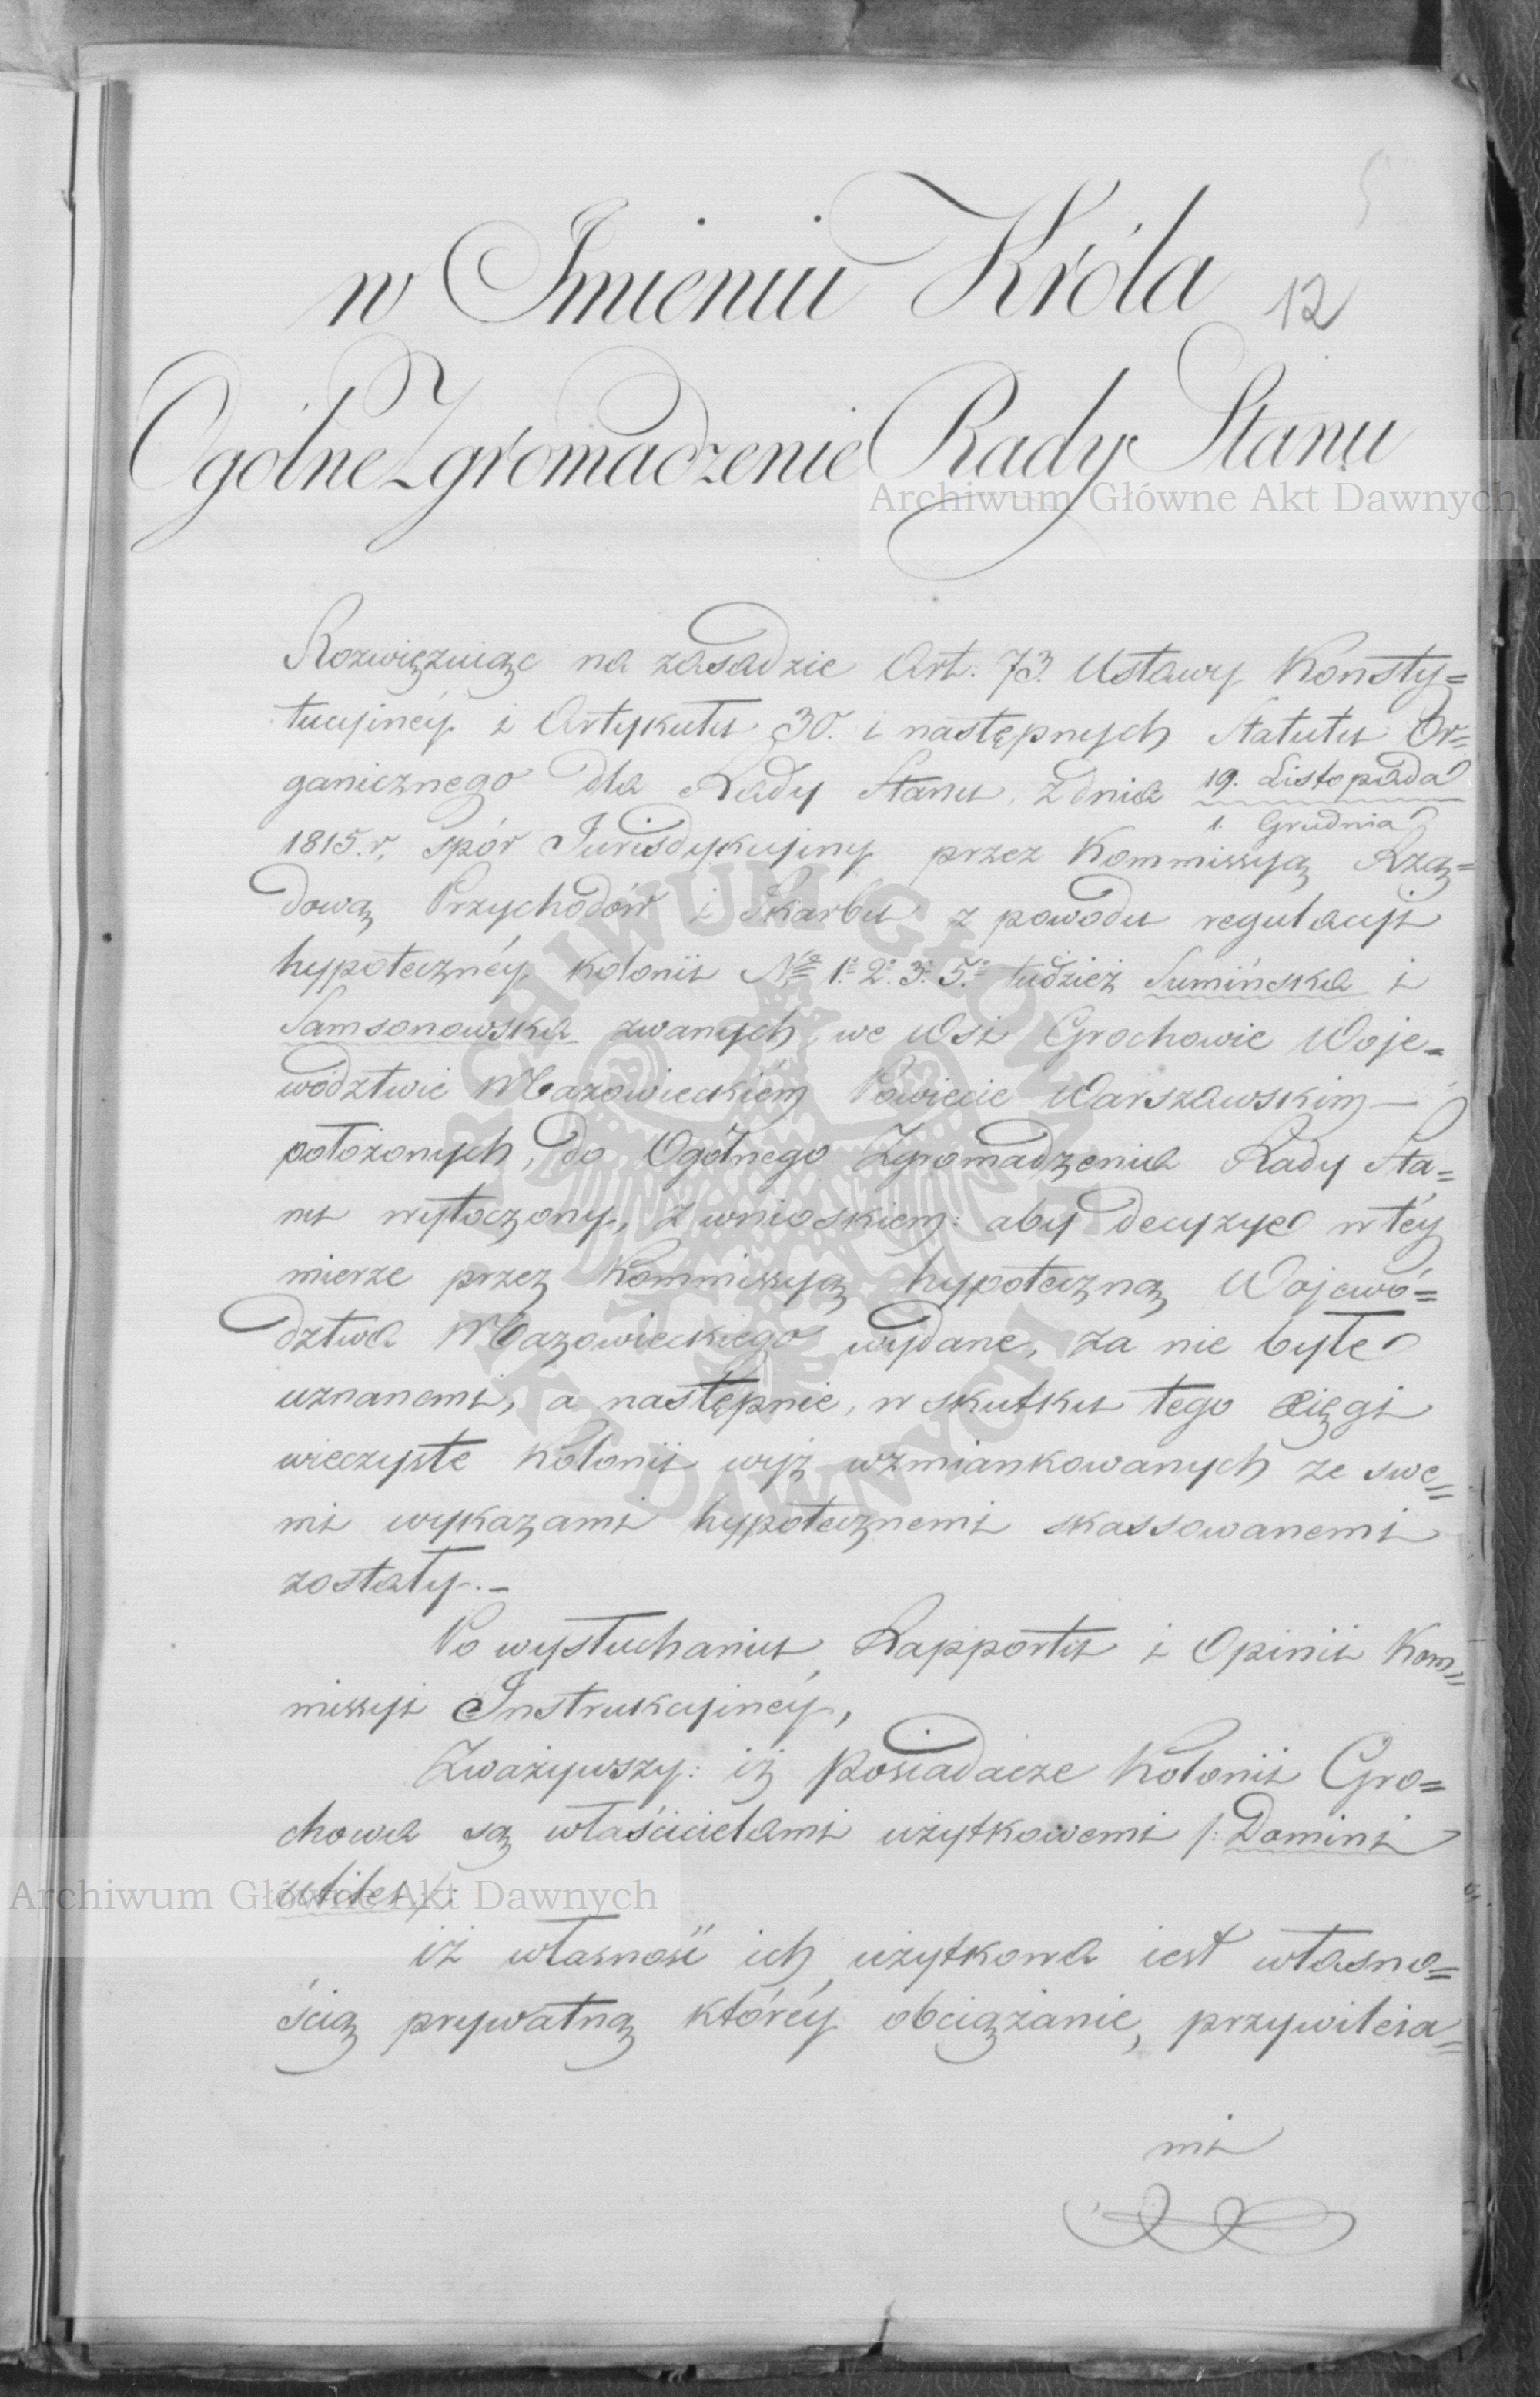 w Imieniu Króla
12
Ogólne Zgromadzenie Rady Stanu
Archiwum Główne Akt Dawnych
Rozwięzuiąc na zasadzie Art. 73. Ustawy Konsty=
tucyinéy i Artykułu 30. i następnych Statutu Or=
ganicznego dla Rady Stanu, z dnia 19. Listopada
1. Grudnia
1815. r. spór Jurisdykcyiny przez Kommissyą Rzą=
dową Przychodów i Skarbu z powodu regulacyi
hypotecznéy kolonii Nro 1. 2. 3. 5. tudzież Sumińska i
Samsonowska zwanych, we Wsi Grochowie Woje=
wództwie Mazowieckiém Powiecie Warszawskim —
położonych, do Ogólnego Zgromadzenia Rady Sta=
nu wytoczony, z wnioskiem: aby decyzye w téy
mierze przez Kommissyą hypoteczną Wojewó=
dztwa Mazowieckiego wydane, za nie byłe
uznanemi, a następnie, w skutku tego xięgi
wieczyste kolonii wyż wzmiankowanych ze swe=
mi wykazami hypotecznemi skassowanemi
zostały. —
Po wysłuchaniu Rapportu i Opinii Kom=
missyi Instrukcyinéy,
Zważywszy: iż posiadacze Kolonii Gro=
chowa są właścicielami użytkowemi /: Domini
utiles :/
Archiwum Główne Akt Dawnych
iż własność ich użytkowa iest własno=
ścią prywatną któréy obciążanie, przywileia=
mi
ARCHIWUM GŁÓWNE AKT DAWNYCH